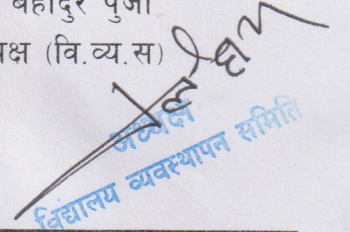 बहादुर पुजा
क्ष (वि.व्य.स)
अध्यक्ष
विद्यालय व्यवस्थापन समिति